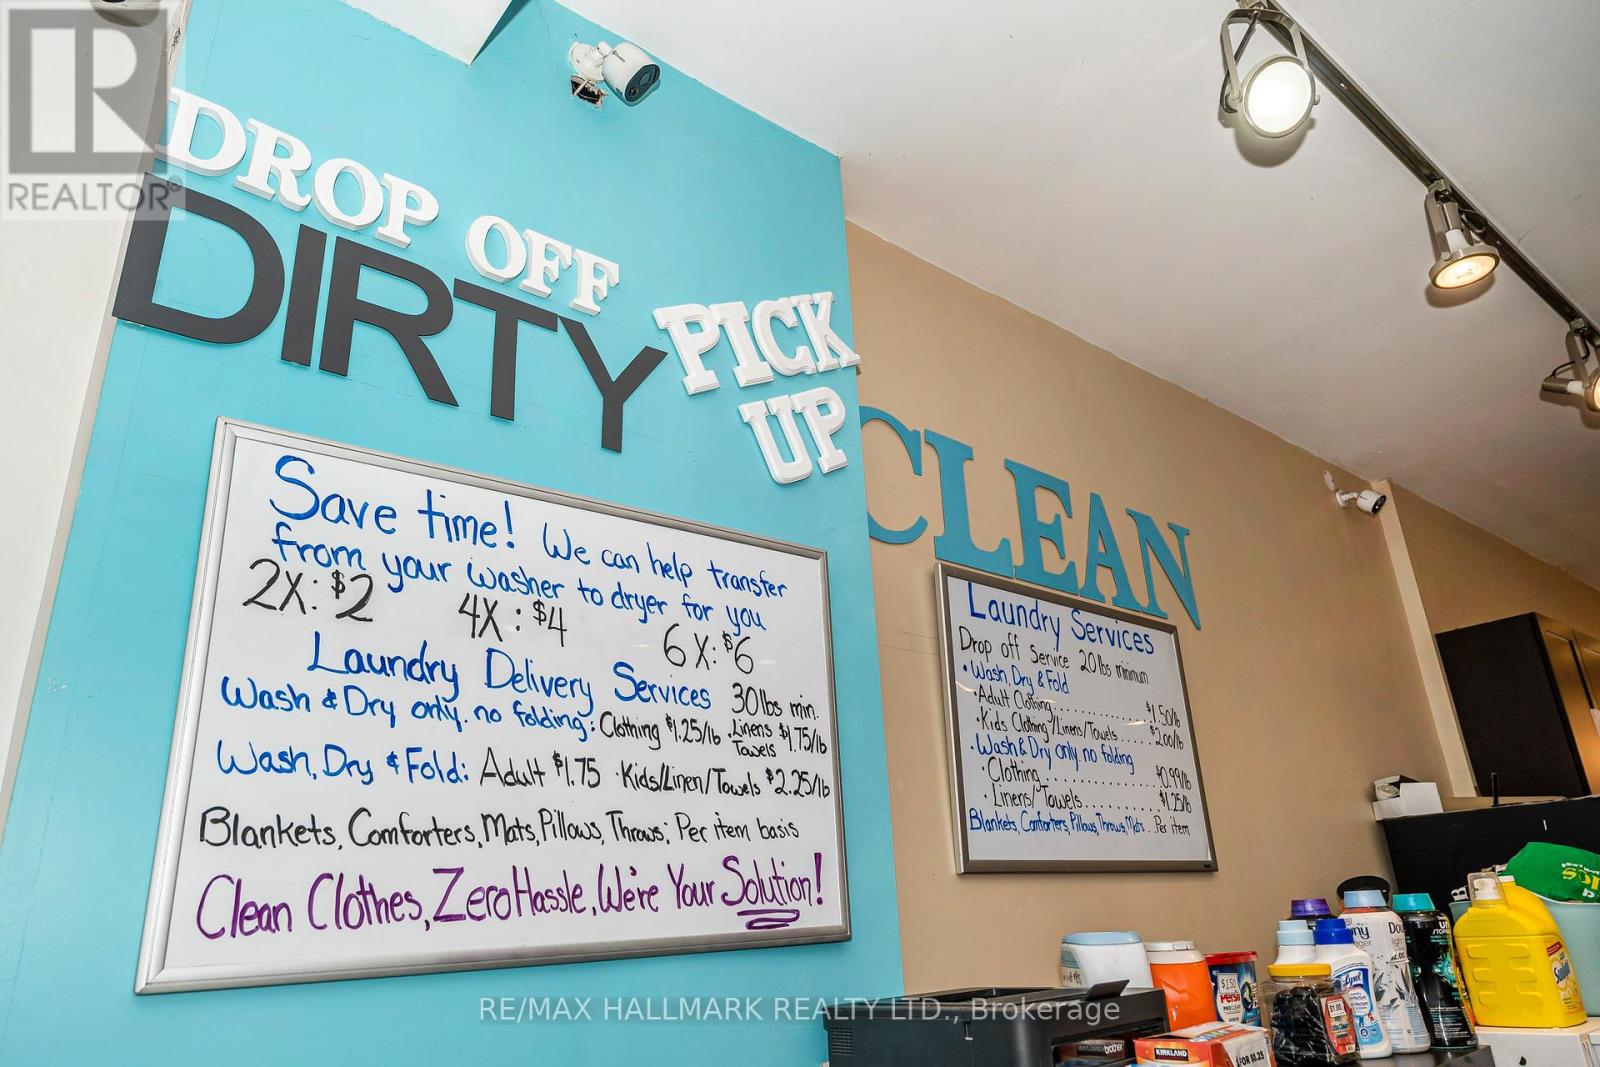 REALTOR®
DROP OFF
DIRTY
PICK
UP
CLEAN
Save time! We can help transfer
from your washer to dryer for you
2X: $2 4X: $4 6X: $6
Laundry Delivery Services 30lbs min.
Wash & Dry only. no folding: Clothing $1.25/lb . Linens $1.75/lb
Towels
Wash, Dry & Fold: Adult $1.75 · Kids/Linen/Towels $2.25/lb
Blankets, Comforters, Mats, Pillows, Throws: Per item basis
Clean Clothes, Zero Hassle, We're Your Solution!
Laundry Services
Drop off Service 20 lbs minimum
• Wash, Dry & Fold
· Adult Clothing............ $1.50/lb
· Kids Clothing/Linens/Towels ...... $2.00/lb
· Wash & Dry only. no folding
· Clothing............ $0.99/lb
· Linens/Towels.......... $1.25/lb
Blankets, Comforters, Pillows, Throws, Mats .. Per item
$1.50
Persil
PROCLEAN
Lysol
$1.00
brother
KIRKLAND
FOR $0.25
RE/MAX HALLMARK REALTY LTD., Brokerage